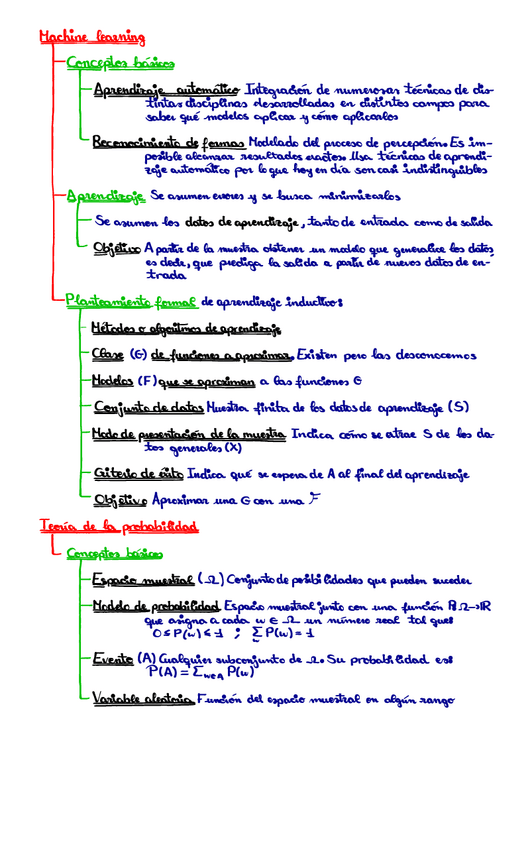 Machine learning
Conceptos básicos
Aprendizaje automático Integración de numerosas técnicas de dis-
tintas disciplinas desarrolladas en distintos campos para
saber qué modelos aplicar y cómo aplicarlos
Reconocimiento de formas Modelado del proceso de percepción. Es im-
posible alcanzar resultados exactos. Usa técnicas de aprendi-
zaje automático por lo que hoy en día son casi indistinguibles
Aprendizaje Se asumen errores y se busca minimizarlos
Se asumen los datos de aprendizaje, tanto de entrada como de salida
Objetivo A partir de la muestra obtener un modelo que generalice los datos,
es decir, que prediga la salida a partir de nuevos datos de en-
trada
Planteamiento formal de aprendizaje inductivo:
Métodos o algoritmos de aprendizaje
Clase (G) de funciones a aproximar. Existen pero las desconocemos
Modelos (F) que se aproximan a las funciones G
Conjunto de datos Muestra finita de los datos de aprendizaje (S)
Modo de presentación de la muestra Indica cómo se extrae S de los da-
tos generales (X)
Criterio de éxito Indica qué se espera de A al final del aprendizaje
Objetivo Aproximar una G con una F
Teoría de la probabilidad
Conceptos básicos
Espacio muestral (Ω) Conjunto de posibilidades que pueden suceder
Modelo de probabilidad Espacio muestral junto con una función P:Ω→ℝ
que asigna a cada w ∈ Ω un número real tal que:
0 ≤ P(w) ≤ 1 ; Σ_w P(w) = 1
Evento (A) Cualquier subconjunto de Ω. Su probabilidad es:
P(A) = Σ_{w∈A} P(w)
Variable aleatoria Función del espacio muestral en algún rango